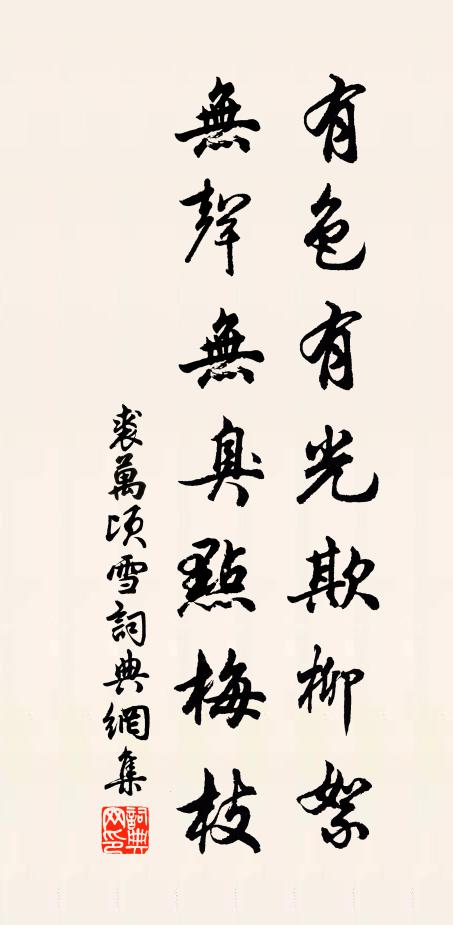 有色有光欺柳絮
無聲無臭點梅枝
裘萬頃雪詞典網集
詞典網印